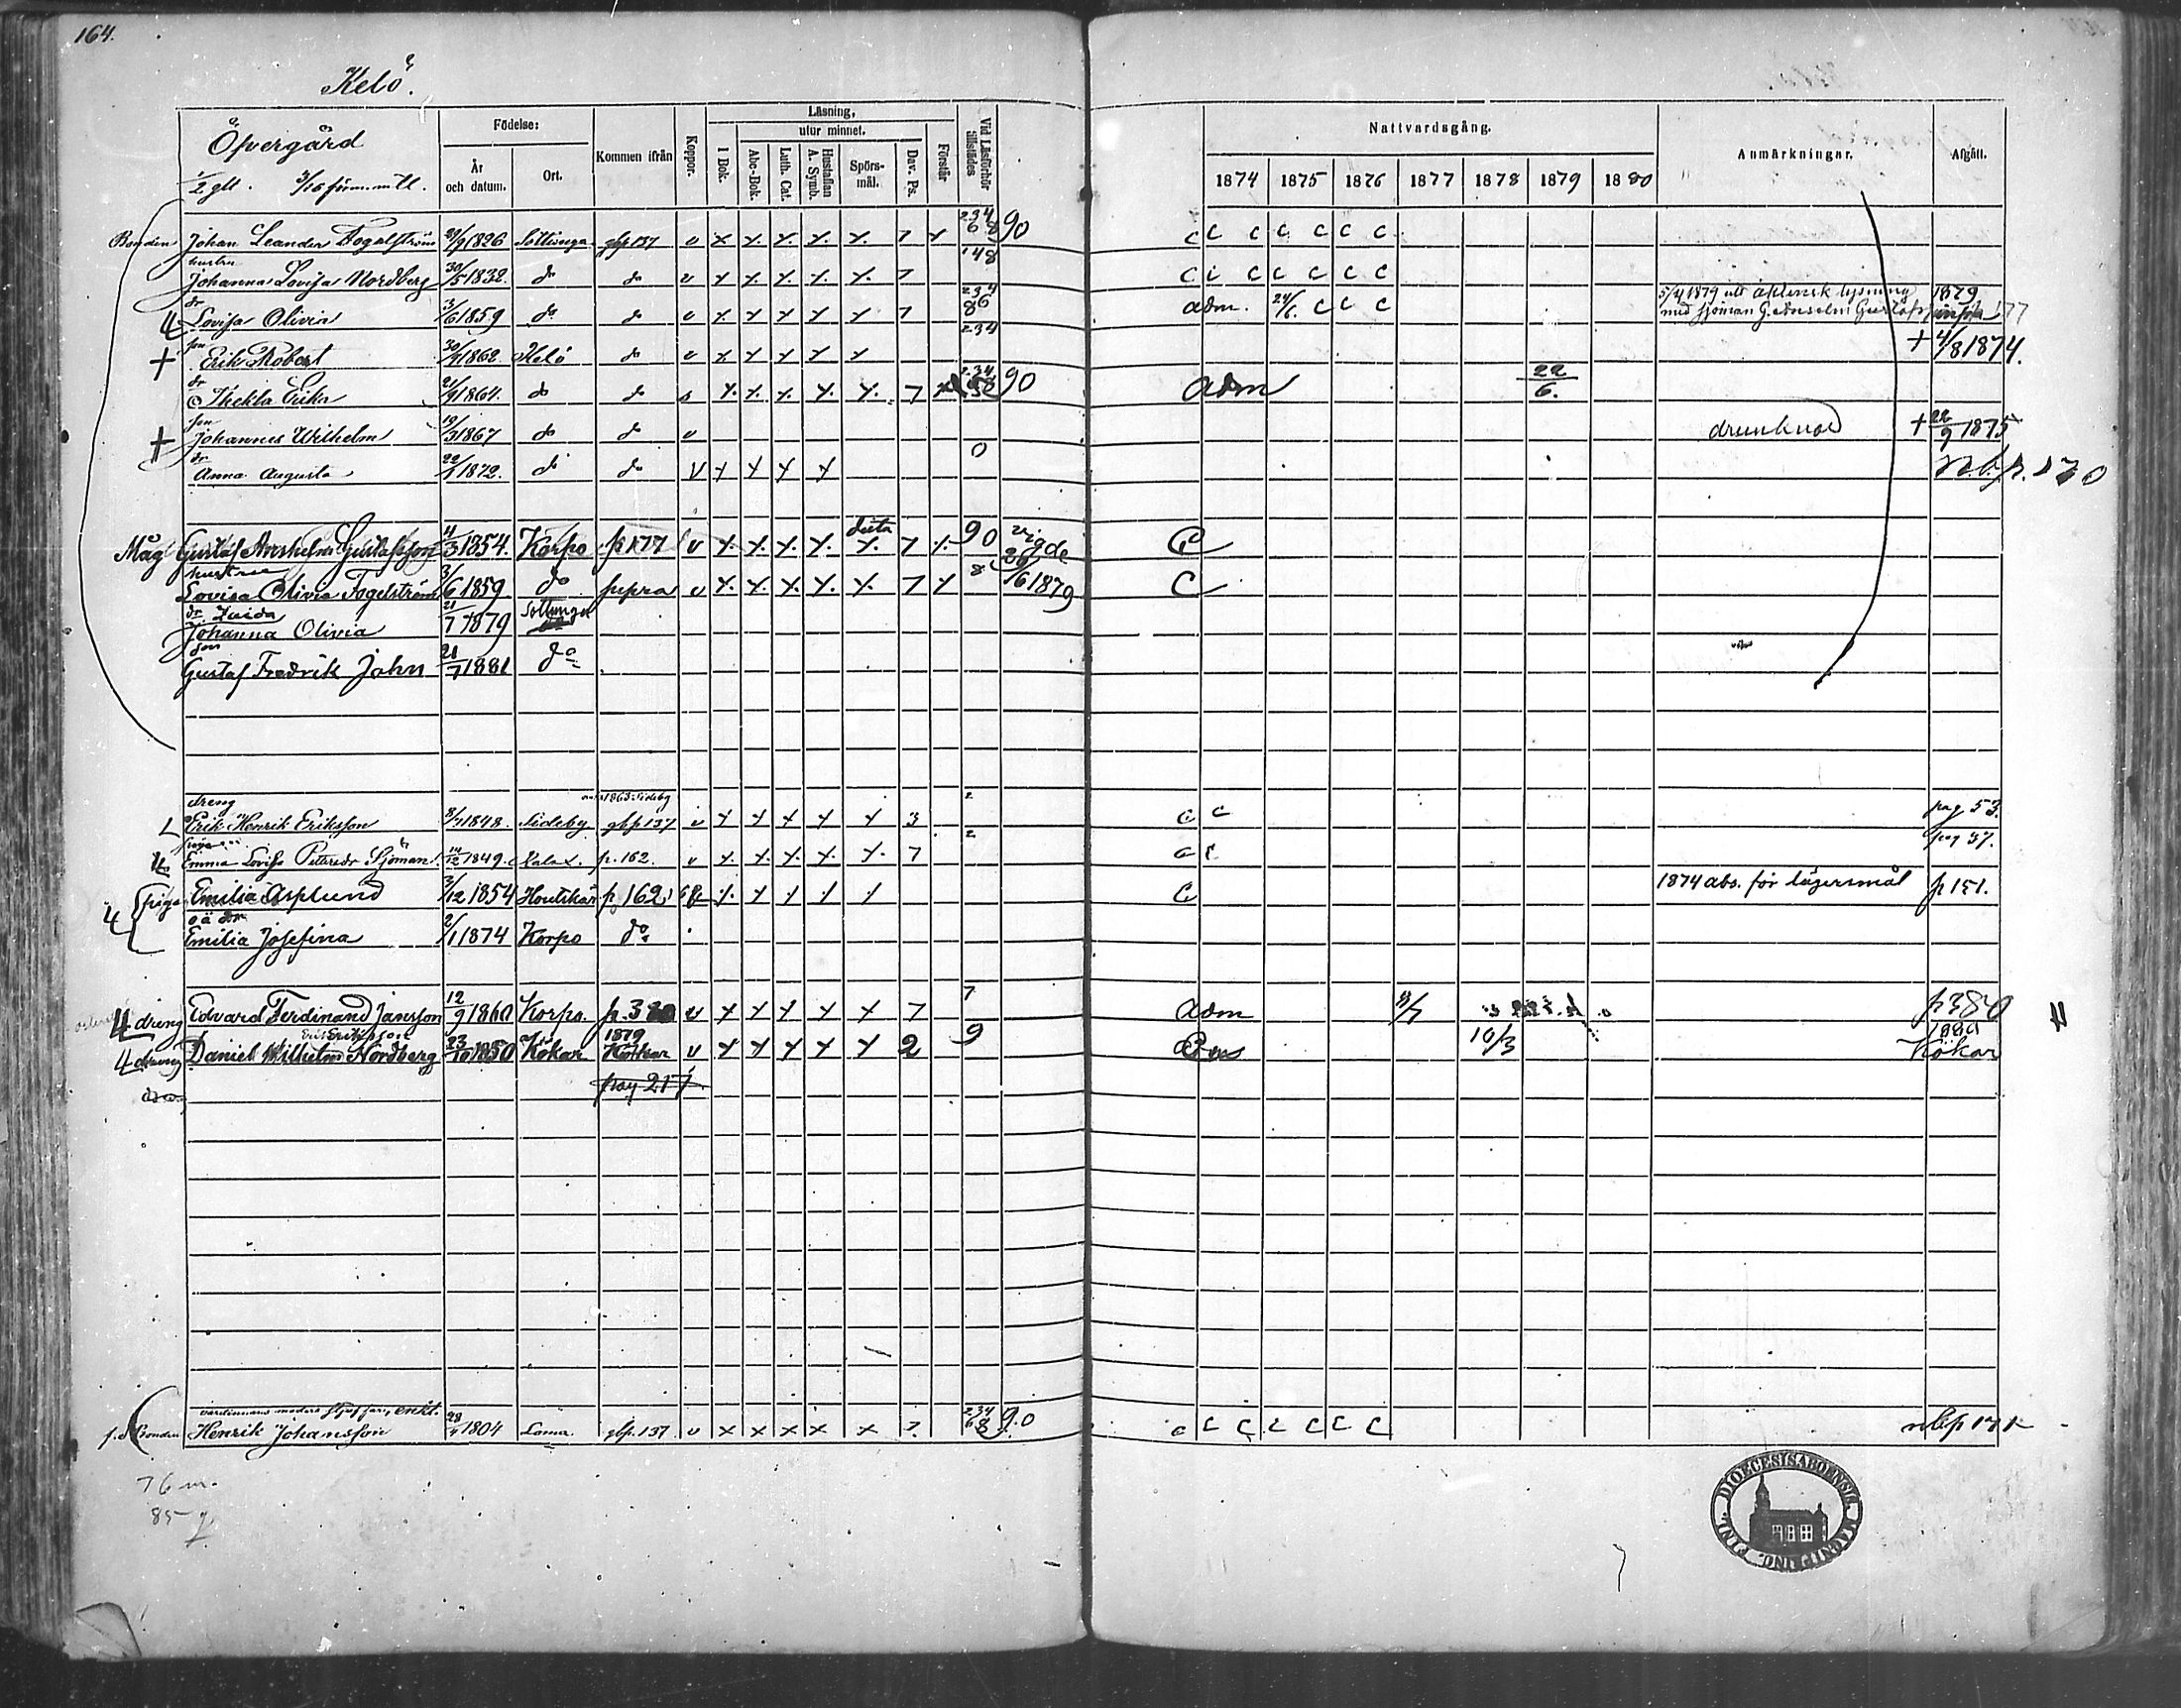 164.
Kelö.
Öfvergård
1/2 gtt. 3/16 förm. mtl.
Födelse:
År och datum.
Ort.
Kommen ifrån
Koppor.
Läsning,
utur minnet.
I Bok.
Abc-Bok.
Luth. Cat.
Hustaflan A. Symb.
Spörs-mål.
Dav. Ps.
Förstår
Vid Läsförhör tillstädes
Nattvardsgång.
1874 1875 1876 1877 1878 1879 1880
Anmärkningar.
Afgått.
Bonden Johan Leander Fogelström 29/9 1826 Sottunga gbp 137 v x x. x. x. x. 7 x 234 68 90 c c c c c c c
hustru
Johanna Lovisa Nordberg 30/5 1832. do do v x x x x x. 7 148 c c c c c c c
dr
Lovisa Olivia 3/6 1859 do do v x x x x x 7 234 86 adm. 24/6. c c c 5/4 1879 uttäktensk. lysning med sjöman G. Anselm Gustafs 1879 177
son
+ Erik Robert 30/9 1862. Kelö do v x x x x x 234 + 4/8 1874.
dr
Thekla Erika 21/9 1864. do do x. x. x. x. x. 7 234 90 adm 22/6.
son
+ Johannes Wilhelm 19/3 1867 do do v drunknad + 22/9 1875
dr
Anna Augusta 22/1 1872. do do v x x x x 0 n.b.p. 170
Måg Gustaf Anshelm Gustafsson 4/3 1854. Korpo p 177 v x. x. x. x. x. 7 x. 90 vigde C
hustru
Lovisa Olivia Fogelström 3/6 1859 do supra v x. x. x. x. x. 7 x 8 20/6 1879 C
dr. Zaida
Johanna Olivia 21/7 1879 Sottunga
son
Gustaf Fredrik John 21/7 1881 do
dreng 1863 Sideby 2
Erik Henrik Eriksson 8/7 1848. Sideby gbp 137 v x x x x x 3 c c pag 53.
piga 2
Emma Lovisa Petersdr Sjöman 14/12 1849. p. 162. v x. x. x. x. x. 7 c c pag 37.
4 piga Emilia Asplund 3/12 1854 Houtskär p 162 C 1874 abs. för lägersmål p 151.
oä dr
Emilia Josefina 2/1 1874 Korpo do
4 dreng Edvard Ferdinand Jansson 12/9 1860 Korpo. p. 380 v x x x x x 7 7 adm 8/7 p 380
Eriksson 1879 1880
4 dreng Daniel Wilhelm Nordberg 23/10 1850 Kökar Kökar v x x x x x 2 9 10/3 Kökar
pag 217
värdinnans moders styffar, enkl.
f.d. Bonden Henrik Johansson 28/4 1804 gbp. 137 v x x x x x 7 234 68 90 c c c c c c c nbp 171
76 m.
85
DIOECESIS ABOENSIS MAGNI PRINC. FINL.